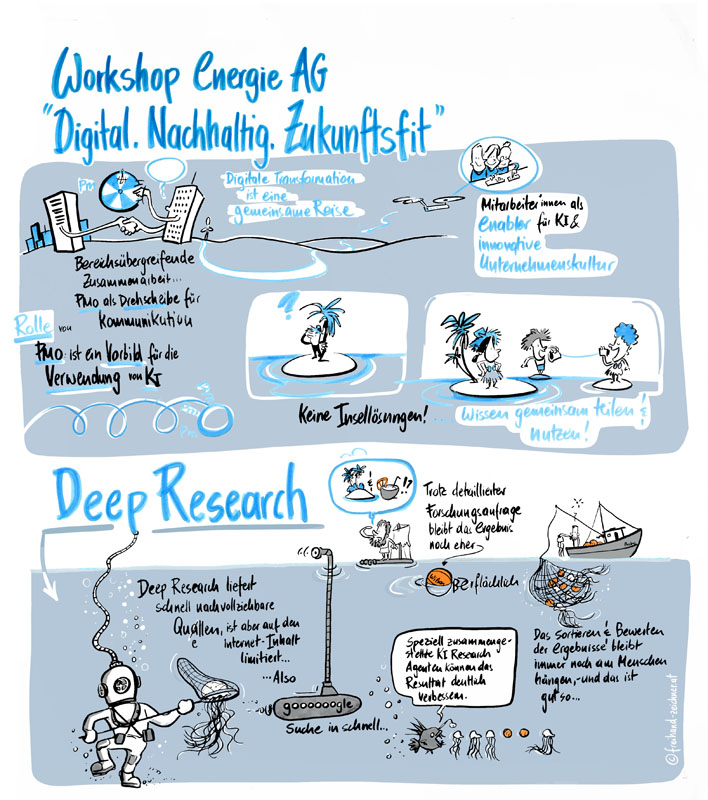 Workshop Energie AG
"Digital. Nachhaltig. Zukunftsfit"
PM
Digitale Transformation
ist eine
gemeinsame Reise
Mitarbeiter:innen als
enabler für KI &
innovative
Unternehmenskultur
Bereichsübergreifende
Zusammenarbeit...
PMO als Drehscheibe für
Kommunikation
Rolle von
PMO: ist ein Vorbild für die
Verwendung von KI
?
Keine Insellösungen!...
Wissen gemeinsam teilen &
nutzen!
Deep Research
& !?
Trotz detaillierter
Forschungsanfrage
bleibt das Ergebnis
noch eher
Oberflächlich
Deep Research liefert
schnell nachvollziehbare
Quallen, ist aber auf den
e
Internet-Inhalt
limitiert...
...Also
goooooogle
Suche in schnell...
Speziell zusammenge-
stellte KI Research
Agenten können das
Resultat deutlich
verbessern.
Das Sortieren & Bewerten
der Ergebnisse bleibt
immer noch am Menschen
hängen,-und das ist
gut so...
©freihand-zeichner.at